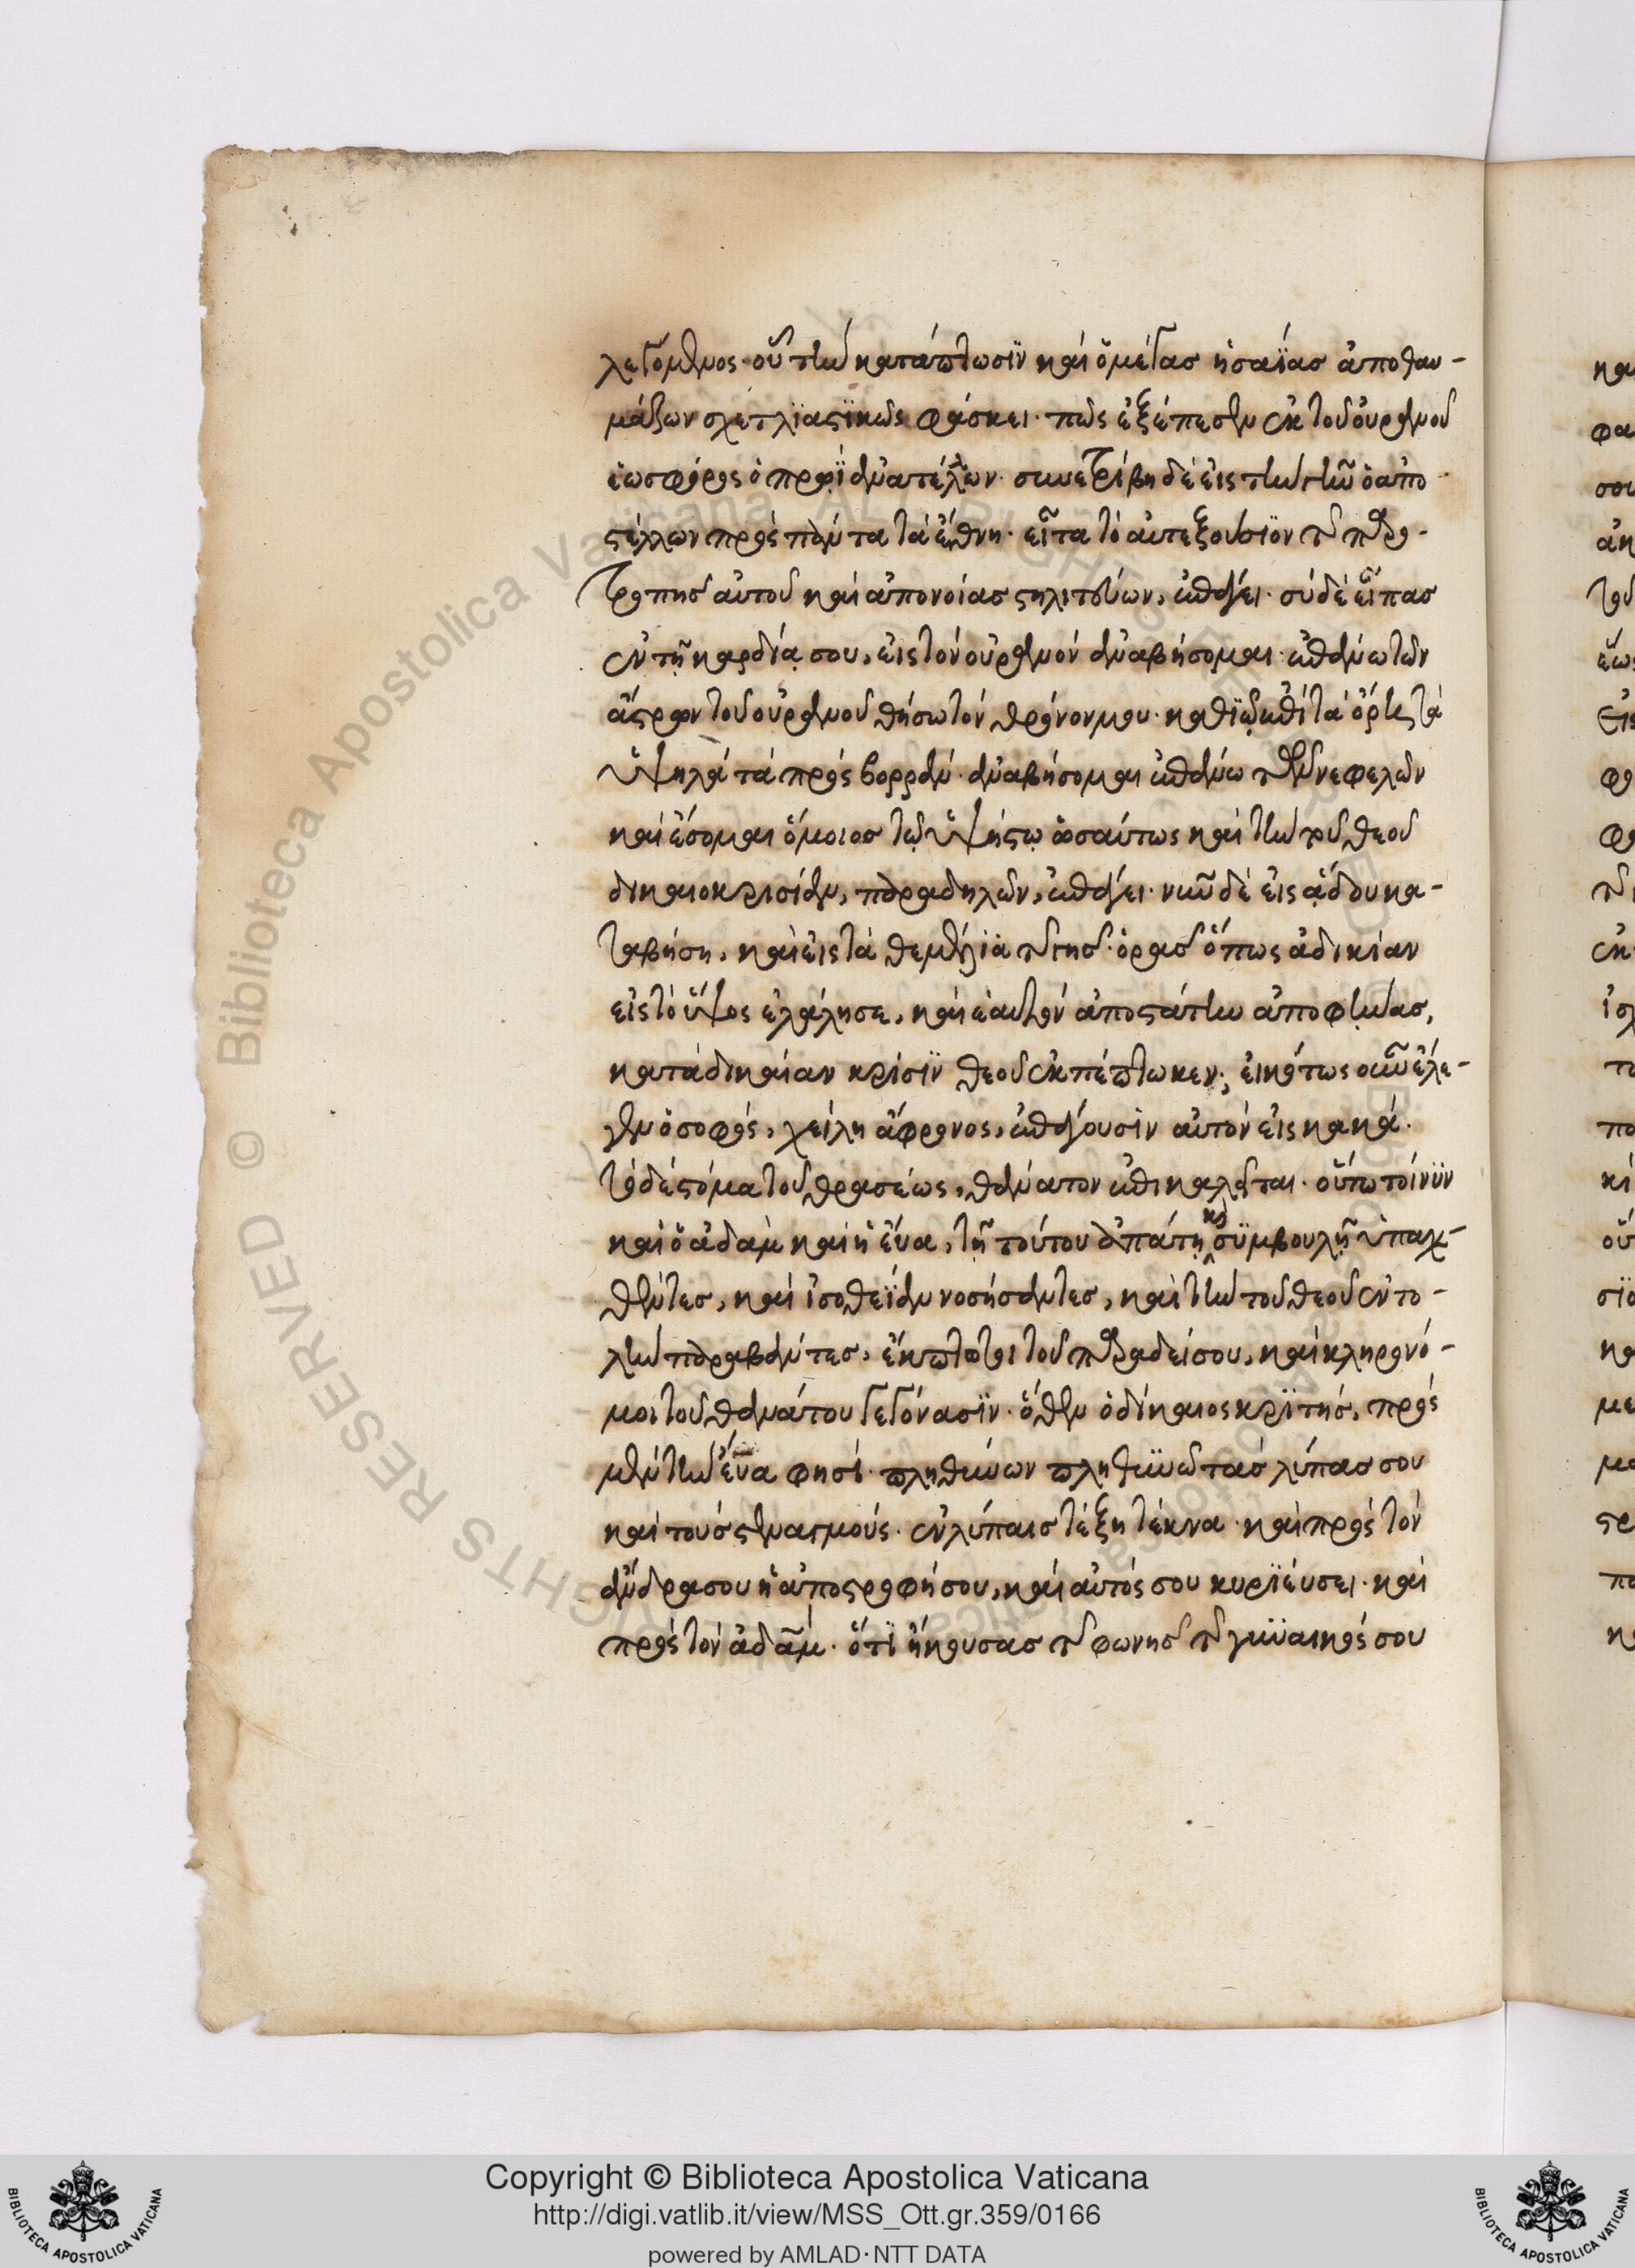 λεγόμενος· οὗ τὴν κατάπτωσϊν καὶ ὁ μέγας ἡσαΐας ἀποθαυ-
μάζων σχετλϊαστϊκῶς φάσκει· πῶς ἐξέπεσεν ἐκ τοῦ οὐρανοῦ
ἑωσφόρος ὁ πρωῒ ἀνατέλλων· συνετρίβη δὲ εἰς τὴν γῆν ὁ ἀπο
στέλλων πρὸς πάντα τὰ ἔθνη· εἶτα τὸ αὐτεξούσϊον τῆς παρο-
τροπῆς αὐτοῦ καὶ ἀπονοίας στηλιτεύων, ἐπάγει· σύ δὲ εἶπας
ἐν τῇ καρδίᾳ σου, εἰς τὸν οὐρανὸν ἀναβήσομαι· ἐπάνω τῶν
ἄστρων τοῦ οὐρανοῦ θήσω τὸν θρόνον μου· καθϊῶ ἐπὶ τὰ ὄρη τὰ
ὑψηλὰ τὰ πρὸς βορρᾶν· ἀναβήσομαι ἐπάνω τῶν νεφελῶν
καὶ ἔσομαι ὅμοιος τῷ ὑψίστῳ ὡσαύτως καὶ τὴν τοῦ θεοῦ
δικαιοκρισίαν, παραδηλῶν, ἐπάγει· νῦν δὲ εἰς ᾅδου κα-
ταβήσῃ, καὶ εἰς τὰ θεμέλϊα τῆς γῆς· ὁρᾶς ὅπως ἀδικίαν
εἰς τὸ ὕψος ἐλάλησε, καὶ ἑαυτὸν ἀποστάτην ἀποφήνας,
κατὰ δικαίαν κρίσϊν θεοῦ ἐκπέπτωκεν; εἰκότως οὖν ἔλε-
γεν ὁ σοφός, χείλη ἄφρονος, ἐπάγουσϊν αὐτὸν εἰς κακά·
τὸ δὲ στόμα τοῦ θρασέως, θάνατον ἐπικαλεῖται· οὕτω τοίνϋν
καὶ ὁ ἀδὰμ καὶ ἡ ἔυα, τῇ τούτου ἀπάτῃ καὶ συμβουλῇ ὑπαχ-
θέντες, καὶ ἰσοθεΐαν νοσήσαντες, καὶ τὴν τοῦ θεοῦ ἐντο-
λὴν παραβάντες, ἔκπτωτοι τοῦ παραδείσου, καὶ κληρονό-
μοι τοῦ θανάτου γεγόνασϊν· ὅθεν ὁ δίκαιος κρϊτής, πρὸς
μὲν τὴν ἔυα φησί· πληθύνων πληθϋνῶ τὰς λύπας σου
καὶ τοὺς στεναγμούς· ἐν λύπαις τέξη τέκνα· καὶ πρὸς τὸν
ἄνδρα σου ἡ ἀποστροφή σου, καὶ αὐτός σου κυρϊεύσει· καὶ
πρὸς τὸν ἀδὰμ· ὅτϊ ἤκουσας τῆς φωνῆς τῆς γϋναικός σου
Copyright © Biblioteca Apostolica Vaticana
http://digi.vatlib.it/view/MSS_Ott.gr.359/0166
powered by AMLAD·NTT DATA